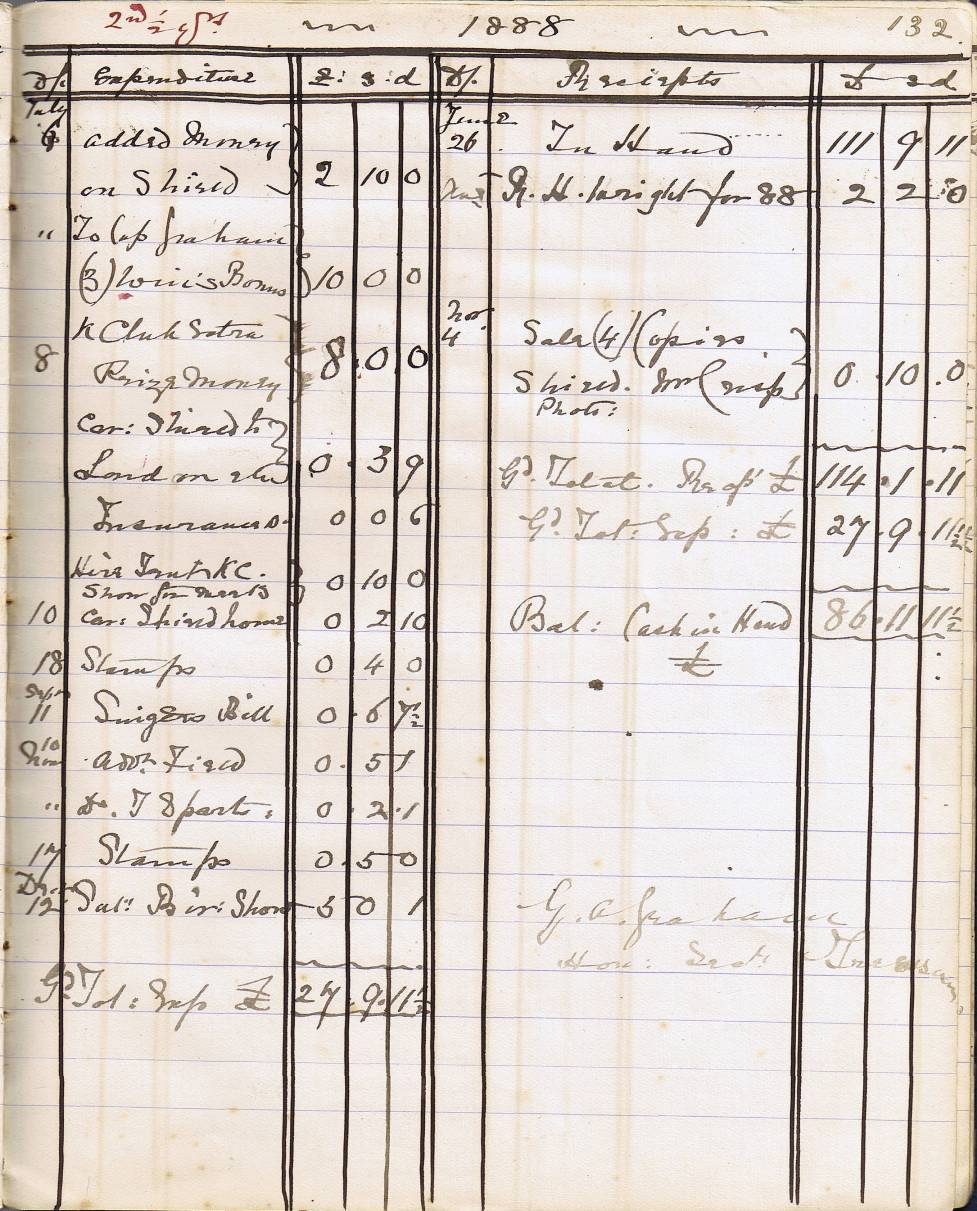 2nd ½ yr 1888 132
D/. Expenditure £: s: d
July
6 added Money
on Shield 2 10 0
" To Cap Graham
(3) Bonus 10 0 0
K Club Extra
8 Prize Money 8.0.0
Car: Shield to
London 0.3 9
Insurance Do. 0 0 6
Hire Tent K C.
Show for meets 0 10 0
10 Car: Shield home 0 2 10
18 Stamps 0 4 0
Sepr
11 Bill 0.6 7½
10
Nov Advt. Field 0.5 1
" Do. 0.2.1
17 Stamps 0.5 0
Decr
12 Bir: Show 5 0 1
Gd Tot: Exp £ 27.9.11½
D/. Receipts £ s d
June
26 In Hand 111 9 11
R. H. Wright for 88 2 2.0
Nov.
4 Sale (4) Copies
Shield. Wm Crisp 0.10.0
Photo:
Gd. Total. Recpt £ 114.1.11
Gd. Tot: Exp: £ 27.9.11½
Bal: Cash in Hand 86.11 11½
£
G. A. Graham
Hon: Sect: Treasurer